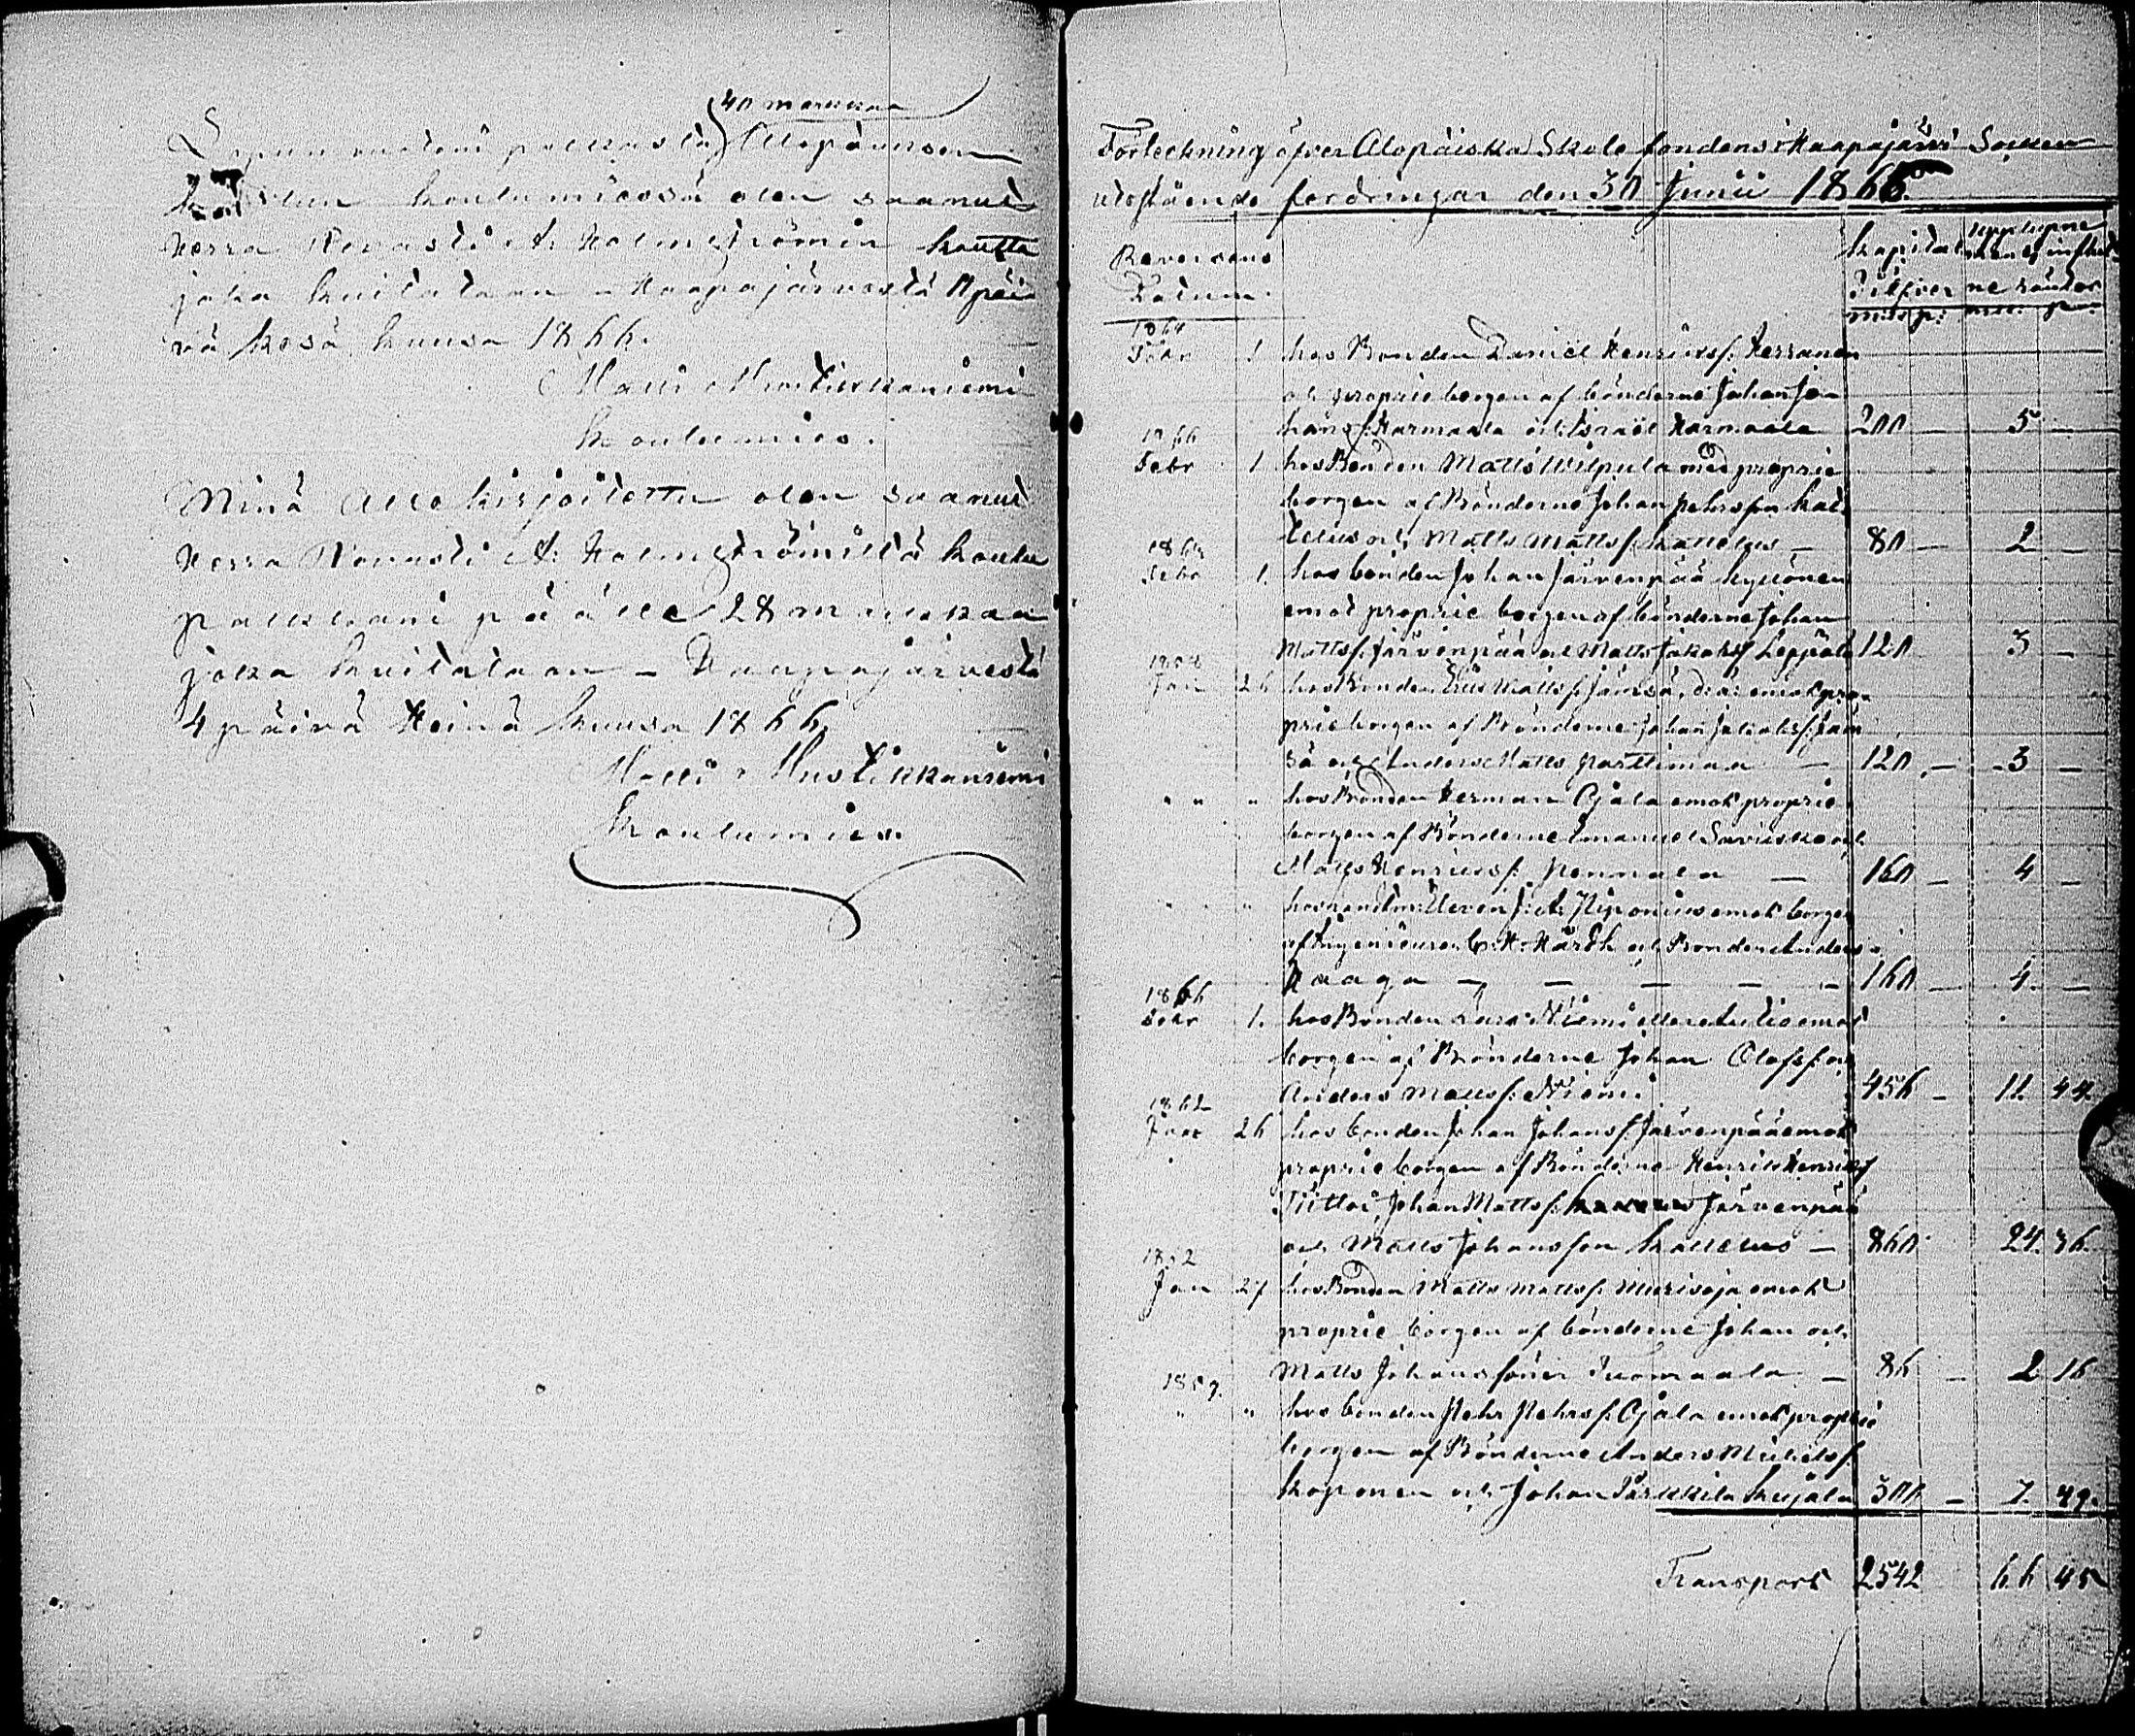 40 markkaa
vuoteni palkasta Alopäusen
koulumiessä olen saanut
Herra Rovasti A: Holmströmin kautta
joka kuitataan – Haapajärvestä päi
vä kesä kuusa 1866.
Matti Mustikkaniemi
Koulumies.
Minä Allekirjoitettu olen saanut
Herra Rovasti A: Holmströmiltä koulu
palkkani päälle 28 markkaa
joka kuitataan – Haapajärvestä
4 päivä Heinä kuusa 1866.
Matti Mustikkaniemi
Koulumies.
Förteckning öfver Alopäiska Skole fondens i Haapajärvi Socken
utestående fordringar den 30 Junii 1866.
Reversens
Datum.
Kapital
Silfver
upplupne
ne räntor
mk p: mk. p:
1864
Febr 1 hos Bonden Daniel Henrikss: Kerranen
och proprie borgen af bönderne Johan Jo
hans: Karmaala och Israël Karmaala 200 — 5 —
1866
Febr 1 hos Bonden Matts Wilpula med proprie
borgen af Bönderne Johan Pehrsson Kat
telus och Matts Mattss: Kattelus — 80 — 2 —
Febr 1. hos bonden Johan Järvenpää Kyllönen
emot proprie borgen af bönderne Johan
Mattss: Järvenpää och Matts Jakobss Leppälä 120 3 —
Jan 26 hos Bonden Eric Mattss: Jämsä, d:ä: emot pro-
prie borgen af Bönderne Johan Jakobss: Jäm
sä och Anders Matts Parttimaa — 120. — 3 —
" " " hos Bonden Herman Ojala emot proprie
borgen af Bönderne Emanuel Saviskoo och
Matts Henrikss: Nonnala — 160 — 4 —
" " " hos Eleven J: A: Niponius emot borgen
af Ingenieuren C. H. Hårdh och Bonden Anders
Haaga — — — — — 160 — 4. —
1866
Febr 1. hos Bonden Lars Niemi eller Autio emot
borgen af Bönderne Johan Olofss: och
Anders Mattss: Niemi 456 — 11. 44
1862
Janr 26 hos bonden Johan Johanss: Järvenpää emot
proprie borgen af Bönderne Henrik Henrikss
Tiitto, Johan Mattss: Järvenpää
och Matts Johansson Kattelus — 860 24. 36.
1852
Jan 27 hos Bonden Matts Mattss: Muurisoja emot
proprie borgen af bönderne Johan och
Matts Johanssöner Tuomaala — 86 — 2 16
1859.
" " hos bonden Pehr Pehrss: Ojala emot proprie
borgen af Bönderne Anders Michelss:
Koponen och Johan Parkkila Kujala 300 — 7. 49.
Transport 2542 66 45